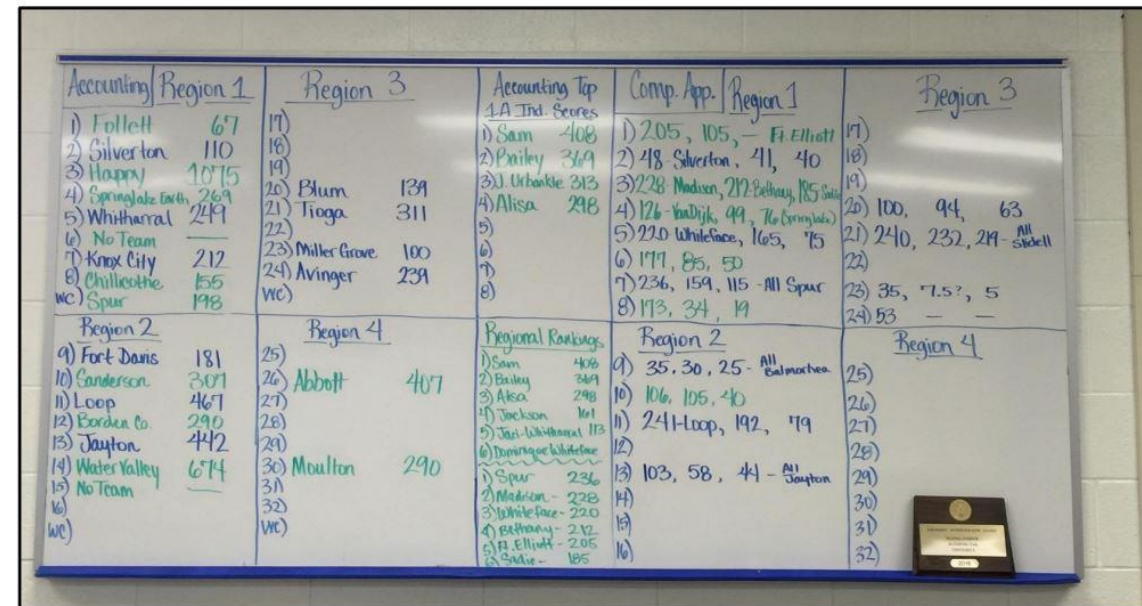 Accounting Region 1
1) Follett 67
2) Silverton 110
3) Happy 1075
4) Springlake Earth 269
5) Whitharral 249
6) No Team —
7) Knox City 212
8) Chillicothe 155
WC) Spur 198
Region 2
9) Fort Davis 181
10) Sanderson 307
11) Loop 467
12) Borden Co. 290
13) Jayton 442
14) Water Valley 674
15) No Team —
16)
WC)
Region 3
17)
18)
19)
20) Blum 139
21) Tioga 311
22)
23) Miller Grove 100
24) Avinger 239
WC)
Region 4
25)
26) Abbott 407
27)
28)
29)
30) Moulton 290
31)
32)
WC)
Accounting Top
1A Ind. Scores
1) Sam 408
2) Bailey 369
3) J. Urbankle 313
4) Alisa 298
5)
6)
7)
8)
Regional Rankings
1) Sam 408
2) Bailey 369
3) Alisa 298
4) Jackson 161
5) Jaci-Whitharral 113
6) Dominique Whiteface
1) Spur 236
2) Madison - 228
3) Whiteface - 220
4) Bethany - 212
5) Ft. Elliott - 205
6) Sadie - 185
Comp. App. Region 1
1) 205, 105, — Ft. Elliott
2) 48-Silverton, 41, 40
3) 228-Madison, 212-Bethany, 185 Sadie
4) 126-VanDijk, 99, 76 (Springlake)
5) 220 Whiteface, 165, 75
6) 177, 85, 50
7) 236, 159, 115 - All Spur
8) 173, 34, 19
Region 2
9) 35, 30, 25 - All Balmorhea
10) 106, 105, 40
11) 241-Loop, 192, 79
12)
13) 103, 58, 44 - All Jayton
14)
15)
16)
Region 3
17)
18)
19)
20) 100, 94, 63
21) 240, 232, 219 - All Slidell
22)
23) 35, 7.5?, 5
24) 53 — —
Region 4
25)
26)
27)
28)
29)
30)
31)
32)
2016